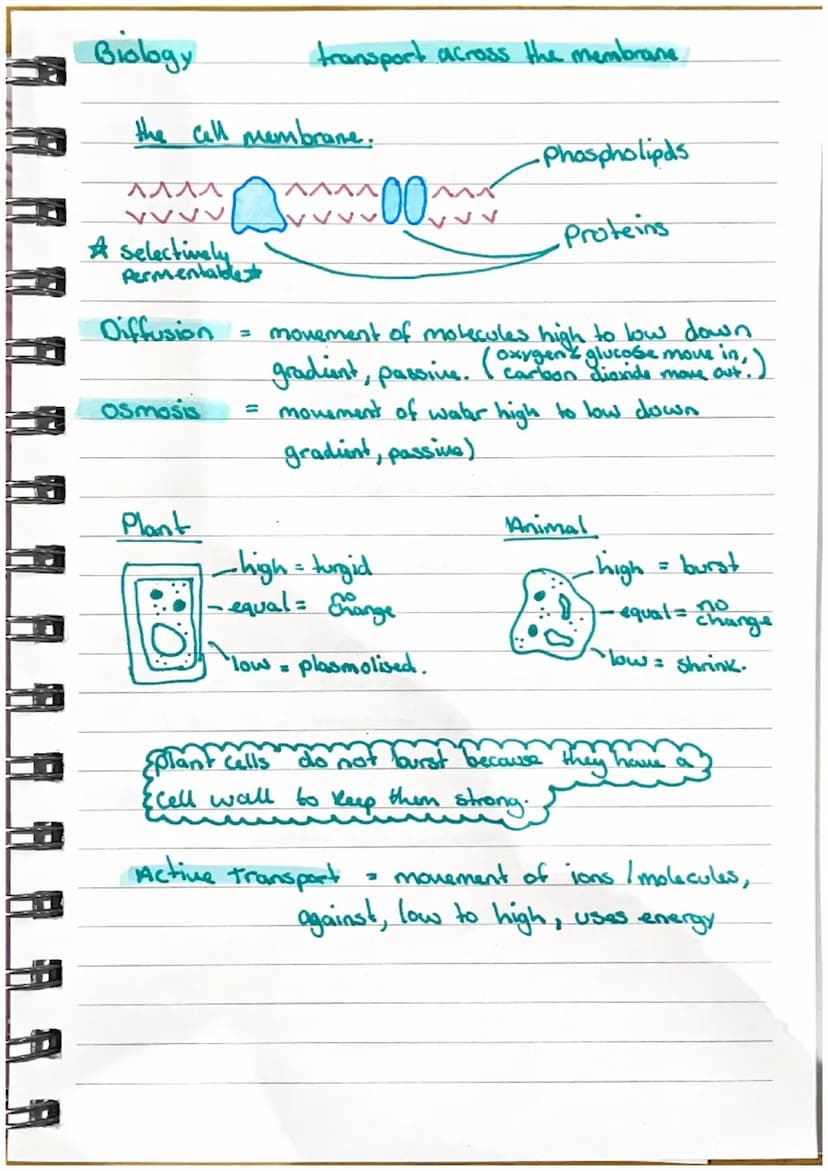 Biology transport across the membrane
the cell membrane.
phospholipids
proteins
☆ selectively
permentable☆
Diffusion = movement of molecules high to low down
gradient, passive. (oxygen & glucose move in,
carbon dioxide move out.)
Osmosis = movement of water high to low down
gradient, passive)
Plant Animal
high = turgid
equal = no change
low = plasmolised.
high = burst
equal = no change
low = shrink.
plant cells do not burst because they have a
cell wall to keep them strong.
Active transport = movement of ions / molecules,
against, low to high, uses energy